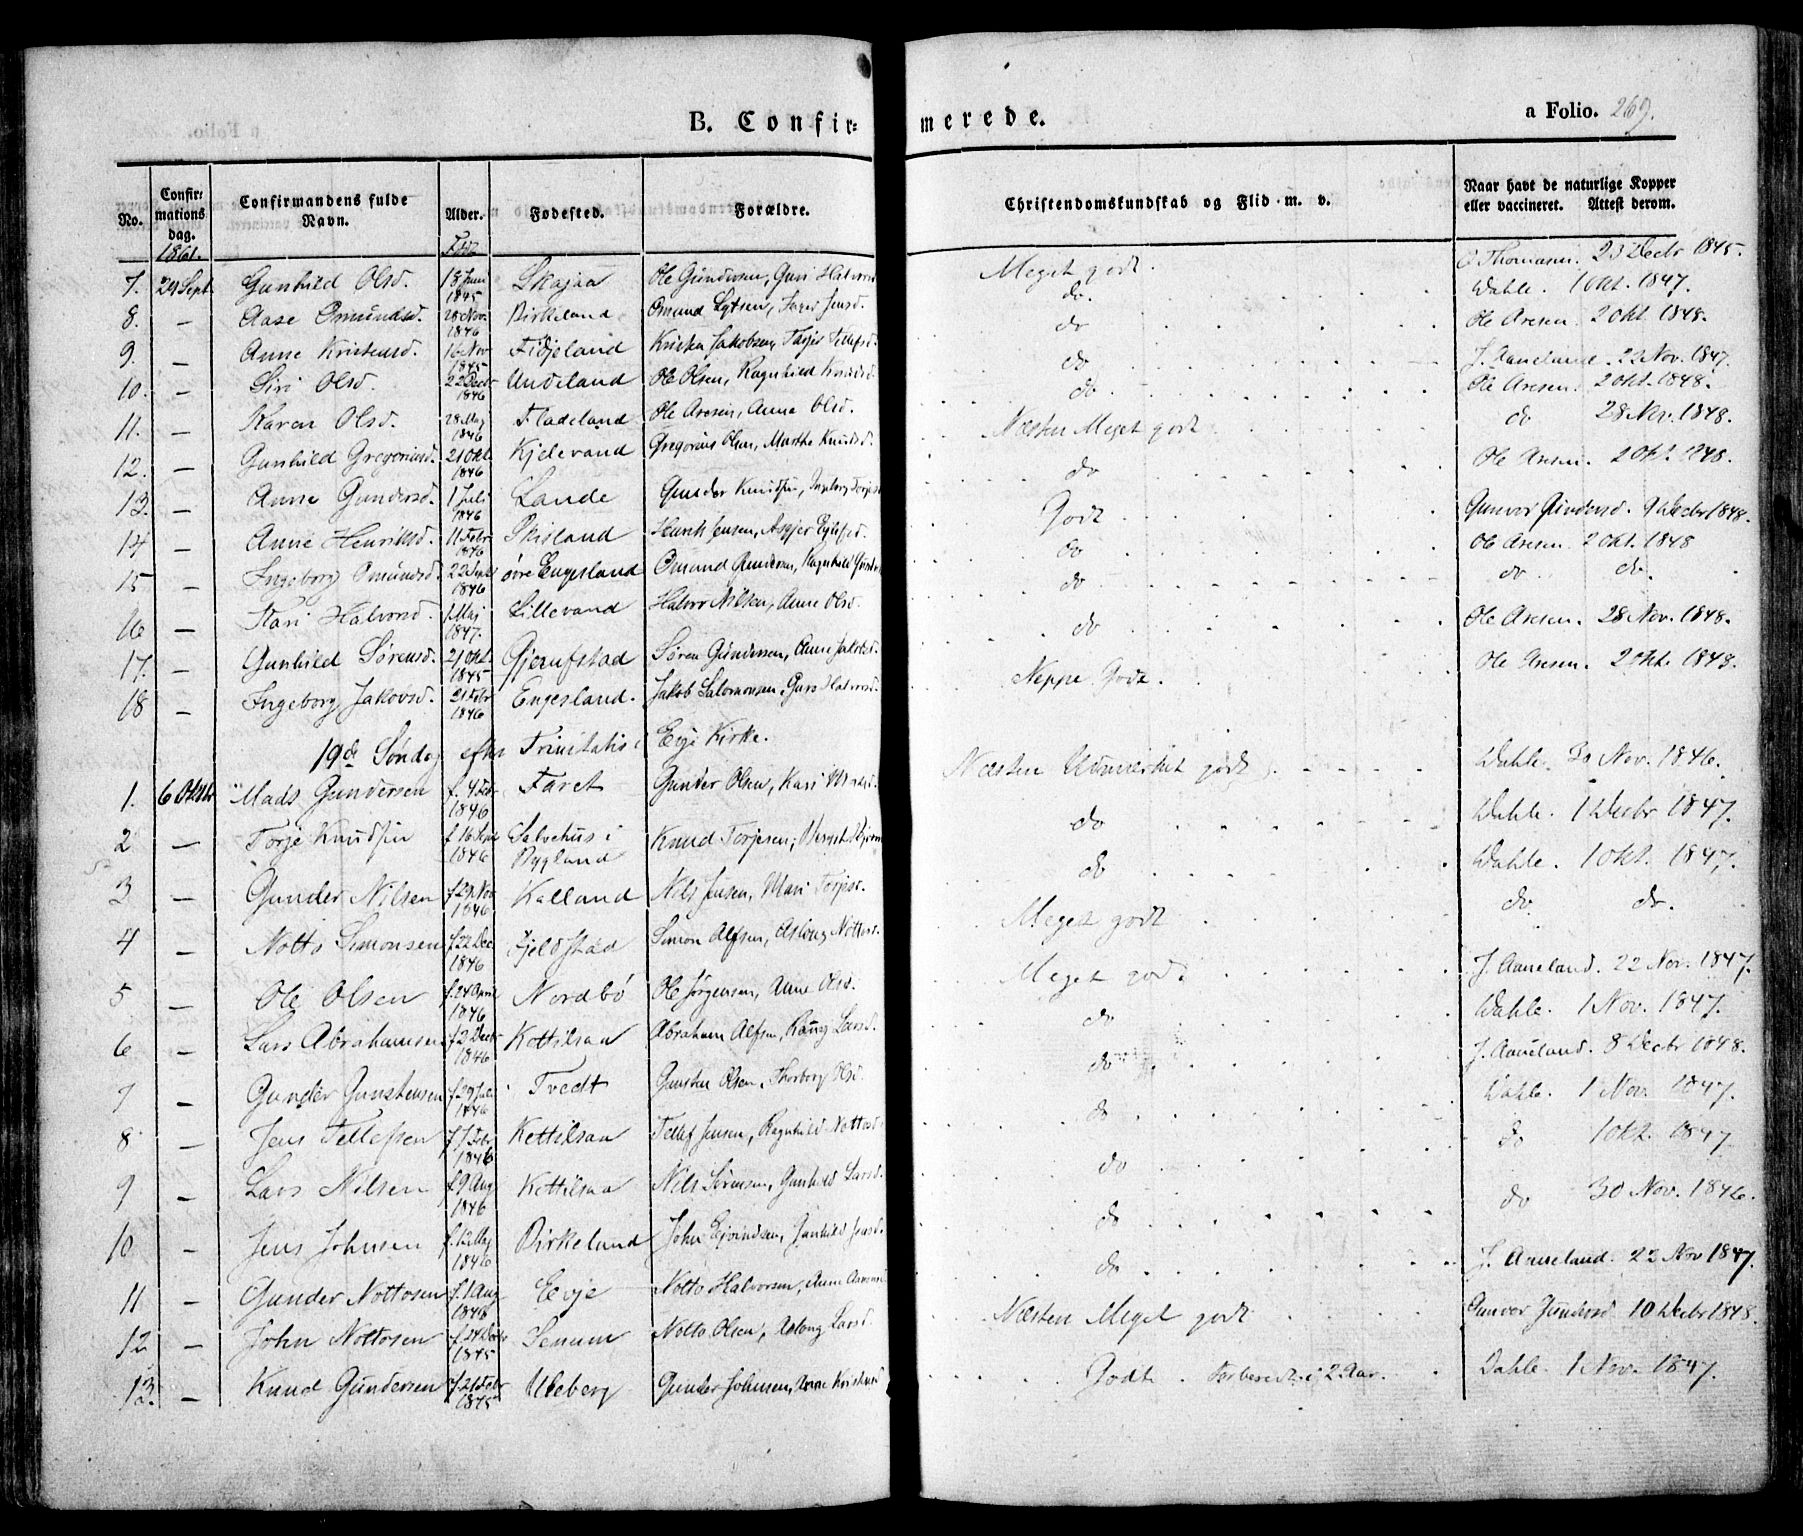 B. Confir= merede. a Folio. 269.
No. Confir= mations dag. Confirmandens fulde Navn. Alder. Fødested. Forældre. Christendomskundskab og Flid m. v. Naar havt de naturlige Kopper eller vaccineret. Attest derom.
1861. Født
7. 29 Sept. Gunhild Olsd. 18 Juni 1845 Skajaa Ole Gundersen, Guri Halvorsd Meget godt. O Thomasen. 23 Decbr 1845.
8. — Aase Omundsd. 28 Nov. 1846 Birkeland Omund Sytsen, Inger Jensd. do. Wahle. 1 Okt. 1847.
9. — Anne Kristensd. 16 Nov 1845 Fidjeland Kristen Jakobsen, Tarjer Tellefsd do Ole Aresen. 2 Okt. 1848.
10. — Siri Olsd. 22 Decbr 1846 Undeland Ole Olsen, Ragnhild Knudsd. do J. Aaneland. 22 Nov. 1847.
11. — Karen Olsd. 28 Maj 1846 Fladeland Ole Aresen, Anne Olsd. do. Ole Aresen. 2 Okt. 1848.
12. — Gunhild Gregoriusd. 21 Okt. 1846 Kjelevand Gregorius Olsen, Marthe Knudsd. Næsten Meget godt do 28 Nov. 1848.
13. — Anne Gundersd. 1 Juli 1846 Lande Gunder Knudsen, Ingeborg Torjesd do Ole Aresen. 2 Okt. 1848.
14 — Anne Henriksd. 11 Febr 1846 Skisland Henrik Jensen, Asgjer Eylefsd. Godt Gunvor Gundersd. 9 Decbr 1848.
15 — Ingeborg Omundsd. 22 Sept 1846 øvre Engesland Omund Gundersen, Ragnhild do Ole Aresen. 2 Okt. 1848
16 — Kari Halvorsd. 1 Maj 1847. Lillevand Halvor Nilsen, Anne Olsd. do do do.
17. — Gunhild Sørensd. 21 Okt. 1845 Gjerufstad Søren Gundersen, Anne Jakobsd. do Ole Aresen. 28 Nov. 1848.
18 — Ingeborg Jakobsd. 21 Febr 1846 Engesland. Jakob Salomonsen, Guro Halvorsd. Neppe Godt. Ole Aresen. 2 Okt. 1848.
19de Søndag efter Trinitatis i Evje Kirke.
1. 6 Oktbr Mads Gundersen f. 4 Febr 1846 Faret Gunder Olsen, Kari Næsten Udmærket godt. Wahle. 30 Nov. 1846.
2 — Torje Knudsen f. 16 Sept 1846 Salvehus i Bygland Knud Torjesen, do Wahle. 1 Decbr 1847.
3 — Gunder Nilsen f. 29 Nov 1846 Kalland Nils Jensen, Mari Torjesd. do Wahle. 1 Okt. 1847.
4 — Notto Simonsen f. 22 Dec. 1846 Fjeldstad Simon Alfsen, Aslaug Nottosd. Meget godt do do.
5 — Ole Olsen f. 24 April 1846 Nordbö Ole Jörgensen, Anne Olsd. Meget godt J. Aaneland. 22 Nov. 1847.
6 — Lars Abrahamsen f. 2 Decbr 1846 Kettilsaa Abraham Alfsen, Larsd. do Wahle. 1 Nov. 1847.
7 — Gunder Gunstensen f. 29 Juli 1846 Tvedt Gunsten Olsen, Thorborg Olsd. do J. Aaneland. 8 Decbr 1848.
8 — Jens Tellefsen f. 7 Febr 1846 Kettilsaa Tellef Jensen, Ragnhild Nottosd. do Wahle. 1 Nov. 1847.
9 — Lars Nilsen f. 9 Aug 1846 Kettilsaa Nils Sörensen, Gunhild Larsd. do do 1 Okt. 1847
10 — Jens Johnsen f. 12 Maj 1846 Birkeland John Ejvindsen, Gunhild Jensd. do do 30 Nov. 1846.
11 — Gunder Nottosen f. 1 Aug 1846 Evje Notto Halvorsen, Anne Aanonsd. do J. Aaneland. 22 Nov 1847.
12 — John Nottosen f. 24 Decbr 1845 Senum Notto Olsen, Aslaug Larsd. Næsten Meget godt Gunvor Gundersd 10 Decbr 1848.
13. — Knud Gundersen f. 21 Febr 1845 Uleberg Gunder Johnsen, Anne Kristensd Godt. Forberedt i 2 Aar. Wahle. 1 Nov. 1847.